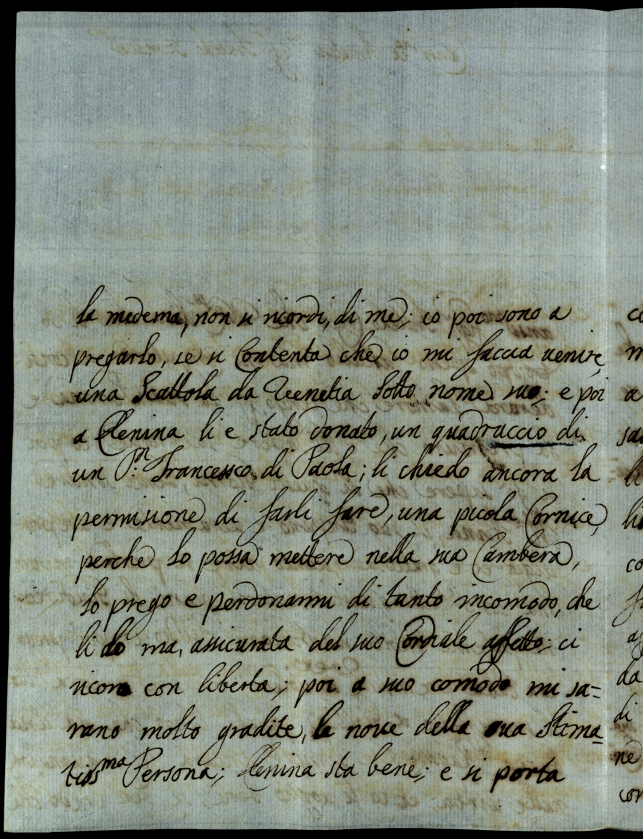 la medema, non si ricordi, di me; io poi sono a
pregarlo, se si Contenta che io mi faccia venire
una Scattola da Venetia sotto nome suo; e poi
a Lenina li e stato donato, un quadruccio di
un P.n Francesco di Paola; li chiedo ancora la
permisione di farli fare, una picola Cornice,
perche lo possa mettere nella sua Cambera,
lo prego e perdonarmi di tanto incomodo, che
li do ma, assicurata del suo Cordiale affetto; ci
ricoro con liberta; poi a suo comodo mi sa=
rano molto gradite, le nove della sua Stima=
tiss.ma Persona; Lenina sta bene; e si porta